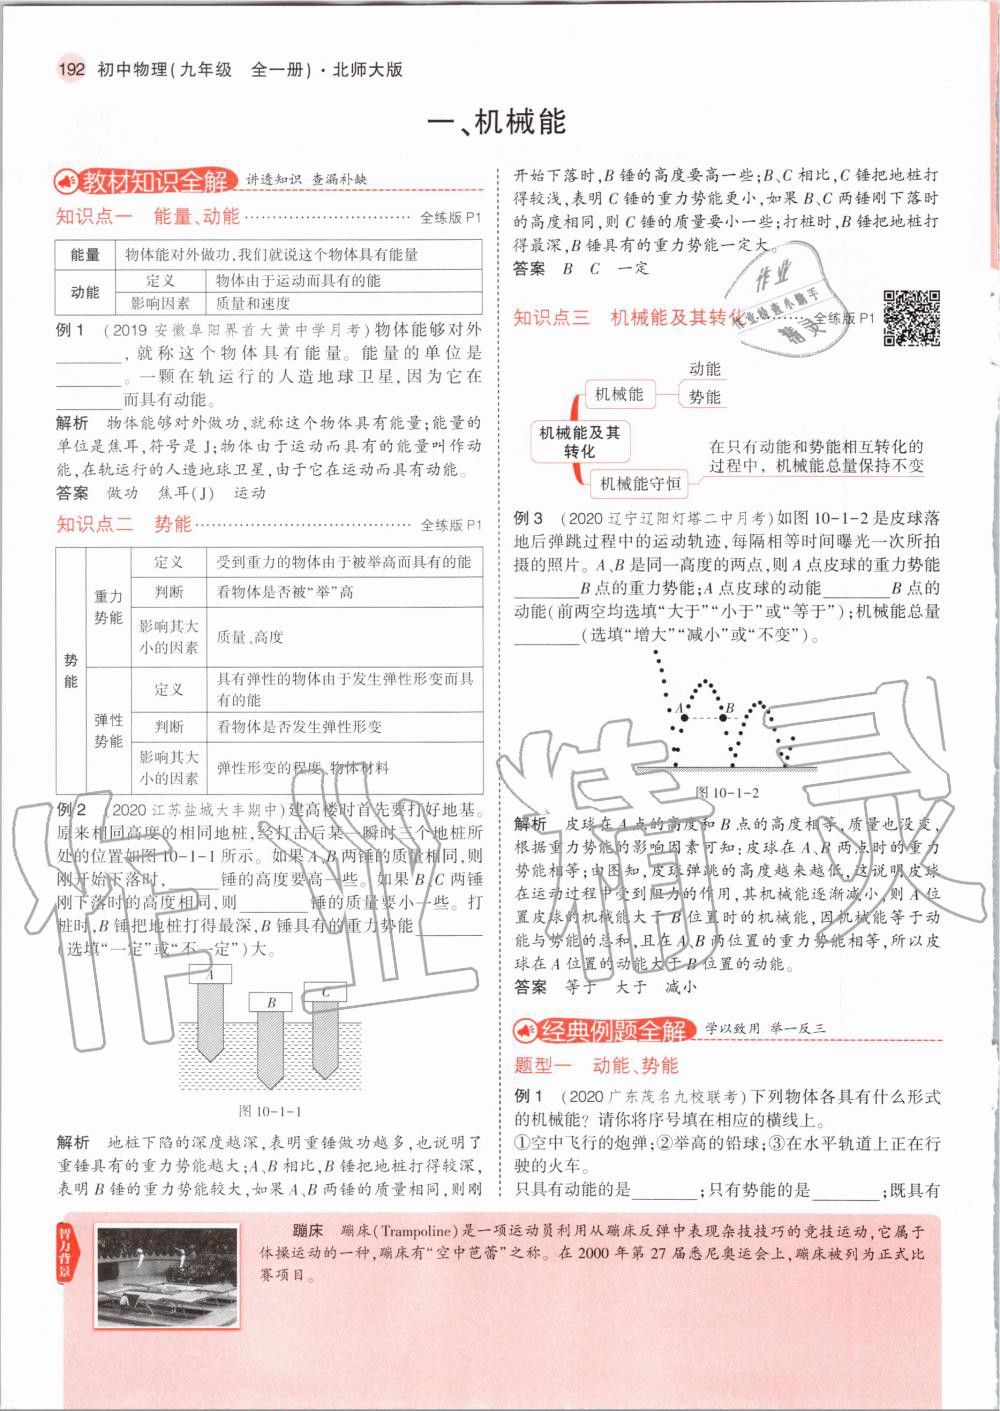 192 初中物理(九年级　全一册)·北师大版
一、机械能
教材知识全解 讲透知识 查漏补缺
知识点一　能量、动能 ································ 全练版 P1
能量 物体能对外做功,我们就说这个物体具有能量
动能 定义 物体由于运动而具有的能
影响因素 质量和速度
例 1　(2019 安徽阜阳界首大黄中学月考)物体能够对外
________,就称这个物体具有能量。能量的单位是
________。一颗在轨运行的人造地球卫星,因为它在
________而具有动能。
解析　物体能够对外做功,就称这个物体具有能量;能量的
单位是焦耳,符号是 J;物体由于运动而具有的能量叫作动
能,在轨运行的人造地球卫星,由于它在运动而具有动能。
答案　做功　焦耳(J)　运动
知识点二　势能 ································ 全练版 P1
势能
重力势能
定义 受到重力的物体由于被举高而具有的能
判断 看物体是否被“举”高
影响其大小的因素 质量、高度
弹性势能
定义 具有弹性的物体由于发生弹性形变而具
有的能
判断 看物体是否发生弹性形变
影响其大小的因素 弹性形变的程度、物体材料
例 2　(2020 江苏盐城大丰期中)建高楼时首先要打好地基。
原来相同高度的相同地桩,经打击后某一瞬时三个地桩所
处的位置如图 10-1-1 所示。如果 A、B 两锤的质量相同,则
刚开始下落时,______锤的高度要高一些。如果 B、C 两锤
刚下落时的高度相同,则________锤的质量要小一些。打
桩时,B 锤把地桩打得最深,B 锤具有的重力势能________
(选填“一定”或“不一定”)大。
A
B
C
图 10-1-1
解析　地桩下陷的深度越深,表明重锤做功越多,也说明了
重锤具有的重力势能越大;A、B 相比,B 锤把地桩打得较深,
表明 B 锤的重力势能较大,如果 A、B 两锤的质量相同,则刚
开始下落时,B 锤的高度要高一些;B、C 相比,C 锤把地桩打
得较浅,表明 C 锤的重力势能更小,如果 B、C 两锤刚下落时
的高度相同,则 C 锤的质量要小一些;打桩时,B 锤把地桩打
得最深,B 锤具有的重力势能一定大。
答案　B　C　一定
知识点三　机械能及其转化 ········ 全练版 P1
作业
作业检查小助手
精灵
机械能及其
转化
机械能
动能
势能
机械能守恒
在只有动能和势能相互转化的
过程中,机械能总量保持不变
例 3　(2020 辽宁辽阳灯塔二中月考)如图 10-1-2 是皮球落
地后弹跳过程中的运动轨迹,每隔相等时间曝光一次所拍
摄的照片。A、B 是同一高度的两点,则 A 点皮球的重力势能
________B 点的重力势能;A 点皮球的动能________B 点的
动能(前两空均选填“大于”“小于”或“等于”);机械能总量
________(选填“增大”“减小”或“不变”)。
A B
图 10-1-2
解析　皮球在 A 点的高度和 B 点的高度相等,质量也没变,
根据重力势能的影响因素可知:皮球在 A、B 两点时的重力
势能相等;由图知,皮球弹跳的高度越来越低,这说明皮球
在运动过程中受到阻力的作用,其机械能逐渐减小,则 A 位
置皮球的机械能大于 B 位置时的机械能,因机械能等于动
能与势能的总和,且在 A、B 两位置的重力势能相等,所以皮
球在 A 位置的动能大于 B 位置的动能。
答案　等于　大于　减小
经典例题全解 学以致用 举一反三
题型一　动能、势能
例 1　(2020 广东茂名九校联考)下列物体各具有什么形式
的机械能? 请你将序号填在相应的横线上。
①空中飞行的炮弹;②举高的铅球;③在水平轨道上正在行
驶的火车。
只具有动能的是________;只有势能的是________;既具有
作业精灵
智力背景
蹦床　蹦床(Trampoline)是一项运动员利用从蹦床反弹中表现杂技技巧的竞技运动,它属于
体操运动的一种,蹦床有“空中芭蕾”之称。在 2000 年第 27 届悉尼奥运会上,蹦床被列为正式比
赛项目。